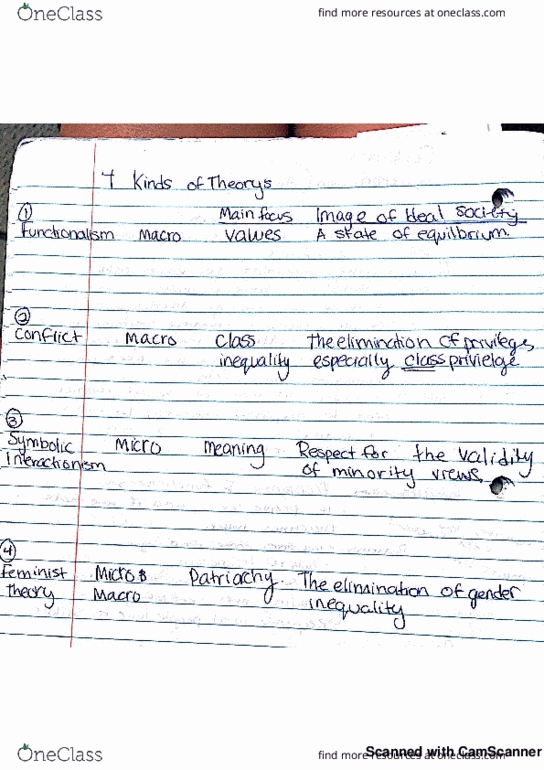 OneClass find more resources at oneclass.com
4 Kinds of Theorys
Main focus Image of Ideal society
①
functionalism Macro values A state of equilbrium
②
Conflict Macro Class The elimination of privilege,
inequality especially class privielge
③
Symbolic Micro meaning Respect for the validity
interactionism of minority views
④
feminist Micro & Patriarchy The elimination of gender
theory Macro inequality
OneClass find more resources at oneclass.com
Scanned with CamScanner